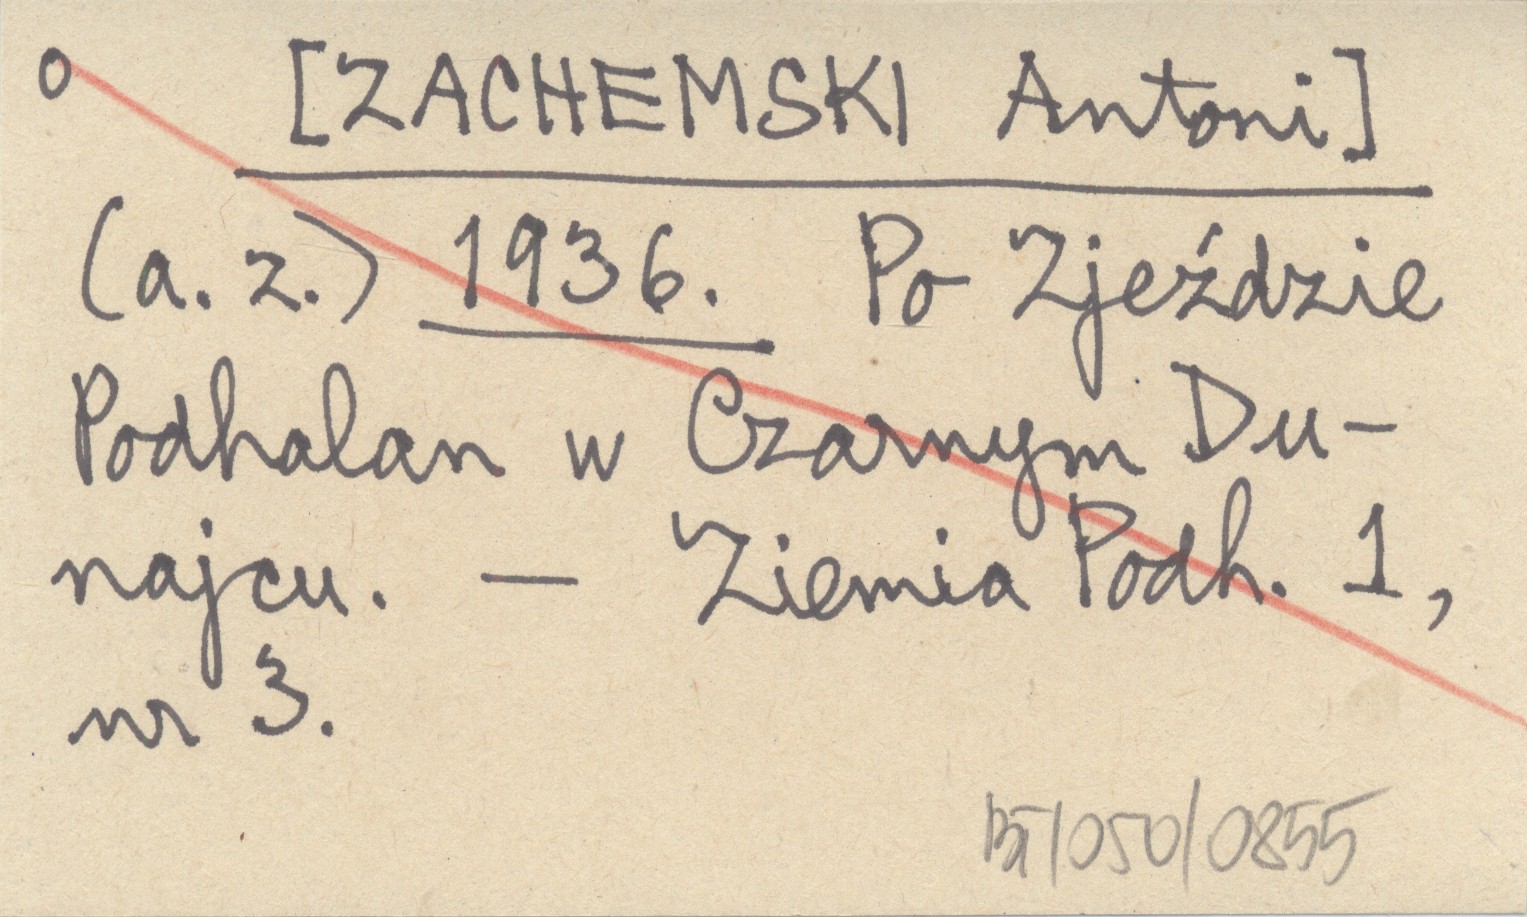 o [ZACHEMSKI Antoni]
(a. z.) 1936. Po Zjeździe
Podhalan w Czarnym Du-
najcu. — Ziemia Podh. 1,
nr 3.
BT/050/0855